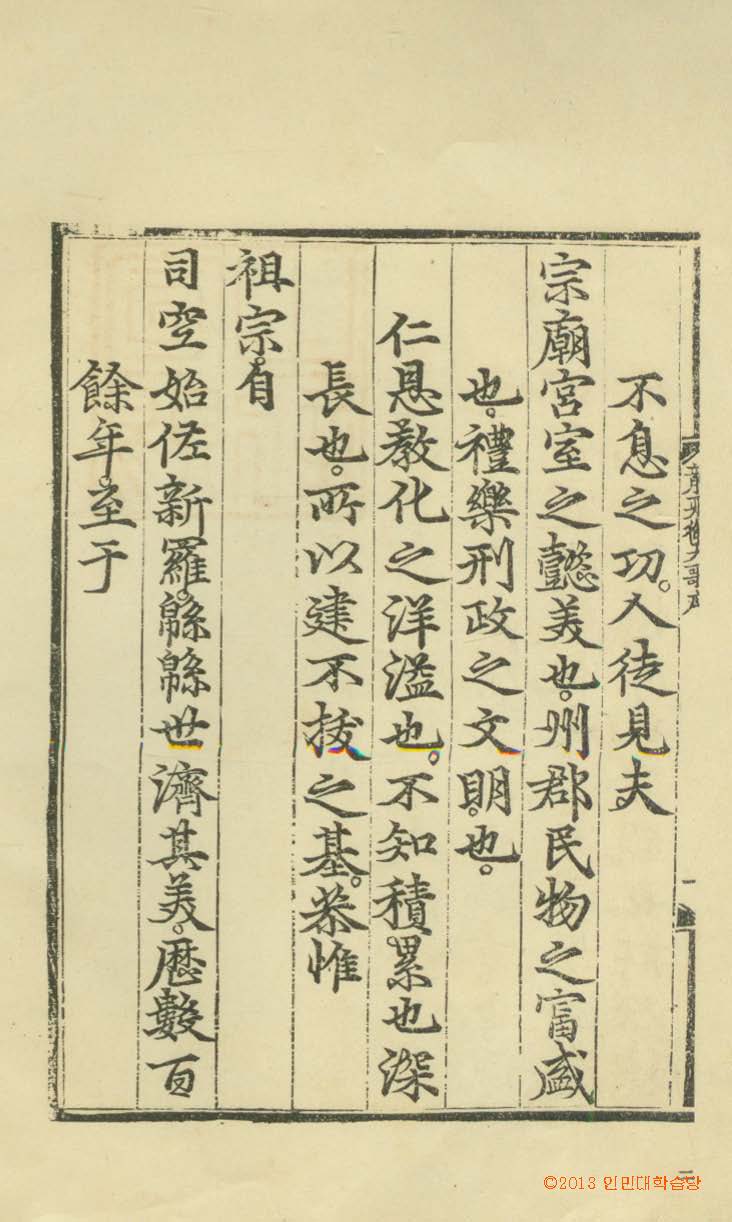 不息之功。人徒見夫
宗廟宮室之懿美也。州郡民物之富盛
也。禮樂刑政之文明也。
仁恩敎化之洋溢也。不知積累也深
長也。所以建不拔之基。恭惟
祖宗。自
司空始佐新羅。緜緜世濟其美。歷數百
餘年。至于
©2013 인민대학습당